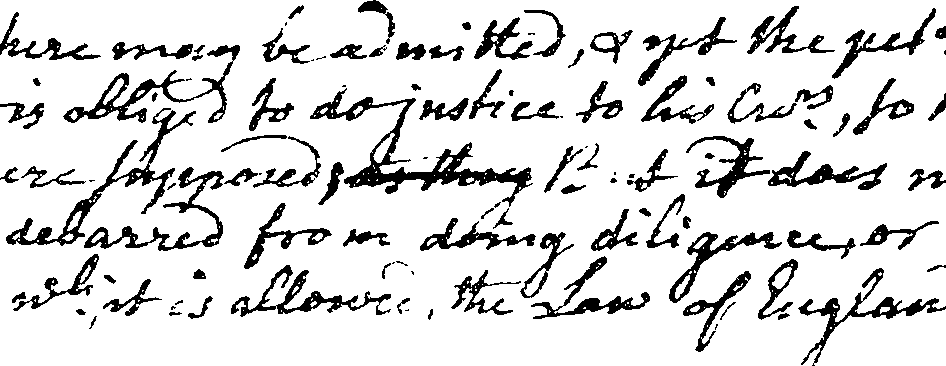 here may be admitted, & yet the pet
is obliged to do justice to his Crrs, so
ere supposed; as they But it does n
debarred from doing diligence, or
wh: it is allowed, the Law of England